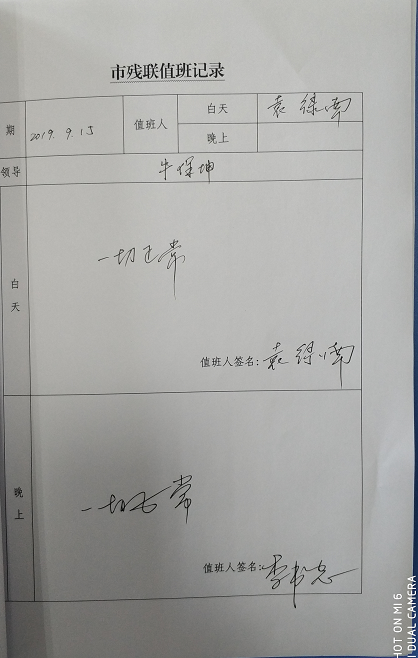 市残联值班记录
期 2019. 9. 15 值班人 白天 袁绿南
晚上
领导 牛保坤
白天 一切正常
值班人签名: 袁绿南
晚上 一切正常
值班人签名: 李书志
SHOT ON MI 6
MI DUAL CAMERA